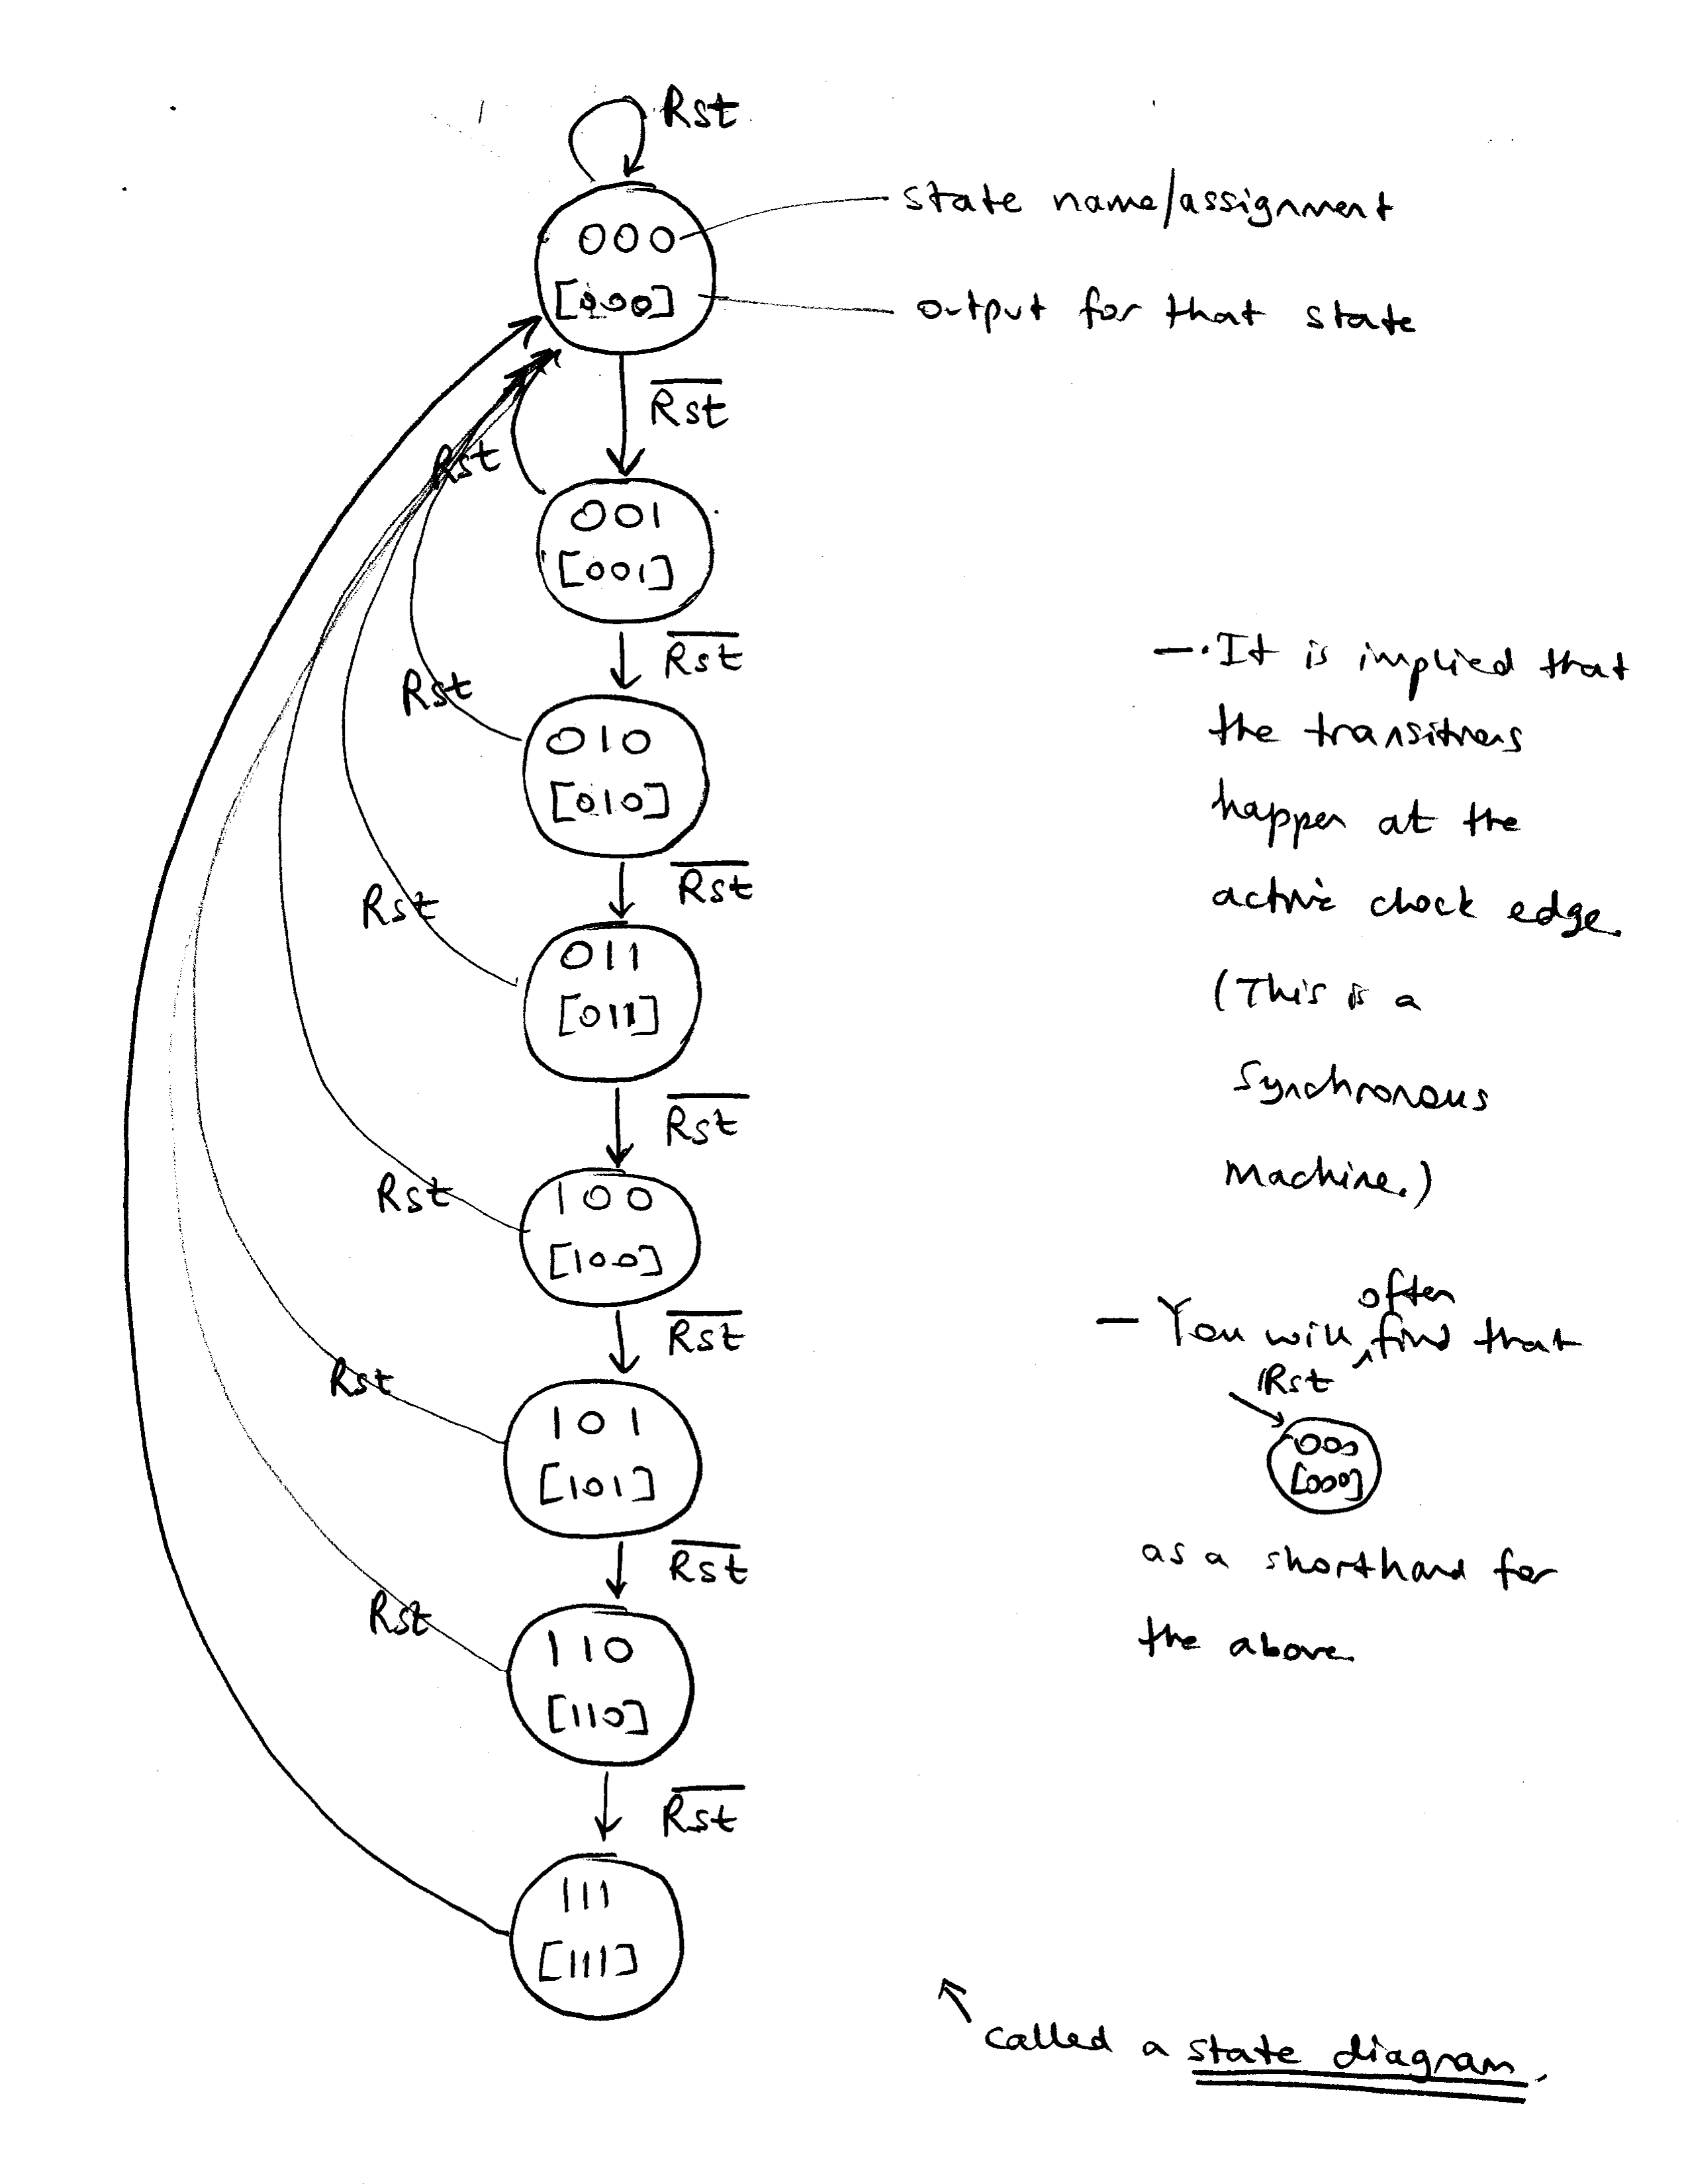 Rst
000
[000]
state name/assignment
output for that state
R̅s̅t̅
Rst
001
[001]
R̅s̅t̅
Rst
010
[010]
R̅s̅t̅
Rst
011
[011]
R̅s̅t̅
Rst
100
[100]
R̅s̅t̅
Rst
101
[101]
R̅s̅t̅
Rst
110
[110]
R̅s̅t̅
111
[111]
-. It is implied that
the transitions
happen at the
active clock edge.
(This is a
synchronous
machine.)
- You will often find that
Rst
000
[000]
as a shorthand for
the above.
called a state diagram.